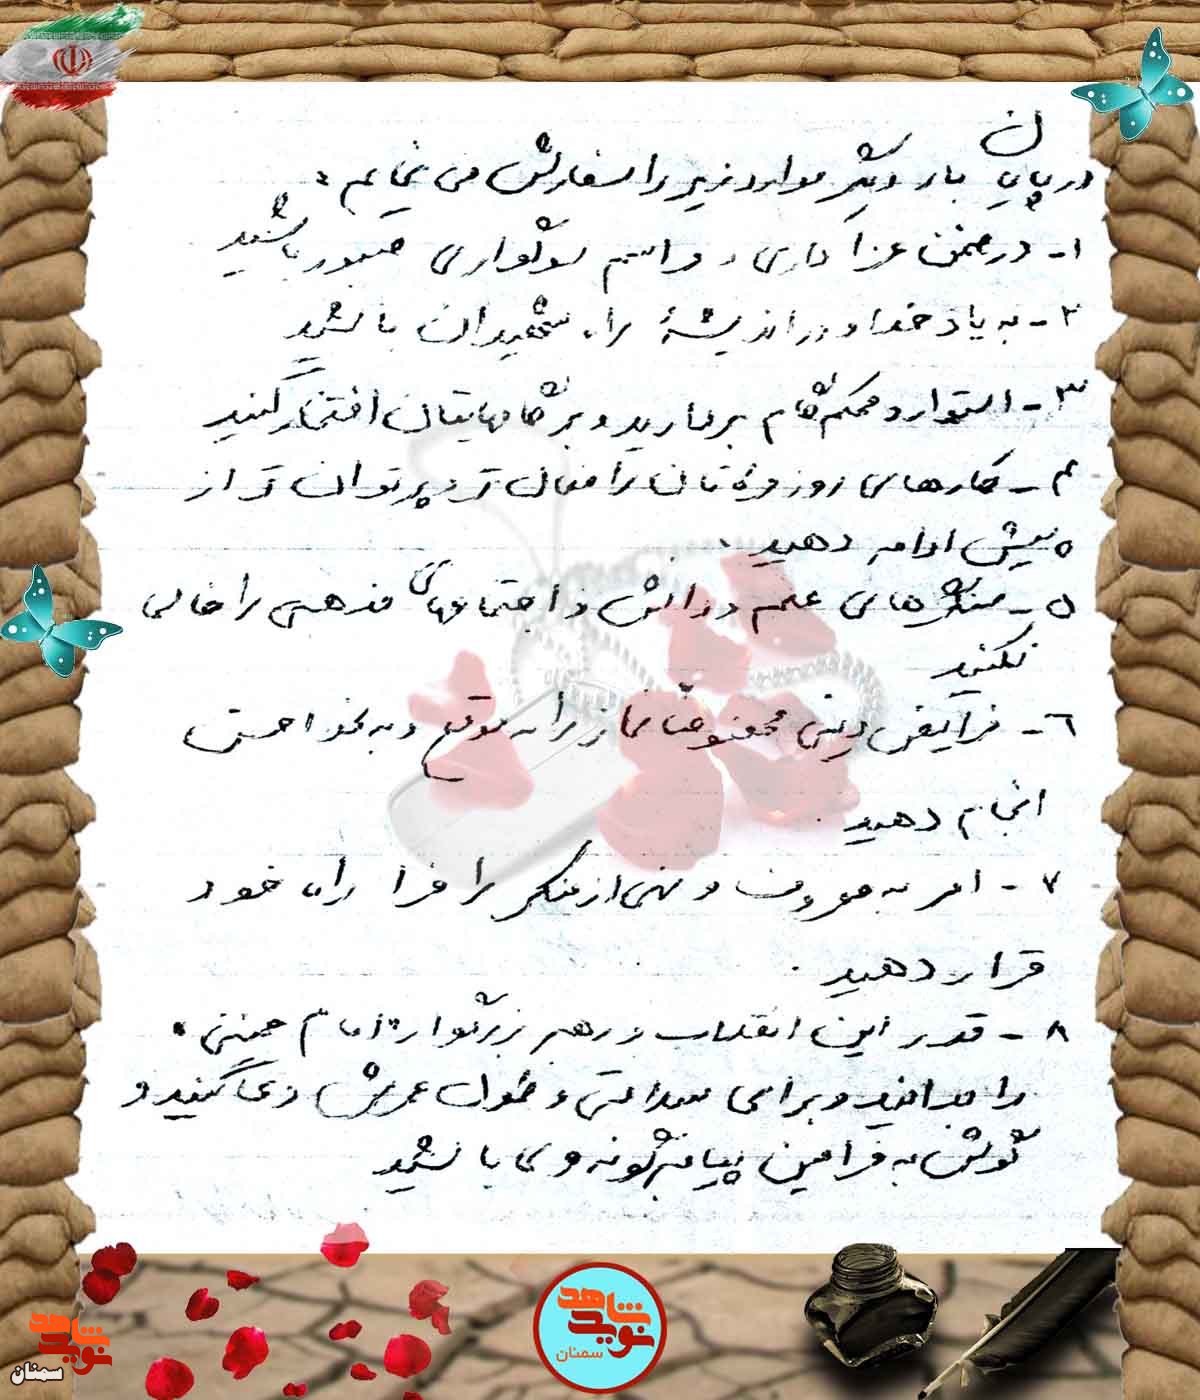 در پایان بار دیگر موارد زیر را سفارش می نمایم :
۱- در ضمن عزاداری و مراسم سوگواری صبور باشید
۲- به یاد خدا و در اندیشهٔ راه شهیدان باشید
۳- استوار و محکم گام بردارید و بر گامهایتان افتخار کنید
۴- کارهای روزمره تان را فعال تر و پر توان تر از
پیش ادامه دهید .
۵- سنگرهای علم و دانش و اجتماعهای مذهبی را خالی
نکنید
۶- فرایض دینی مخصوصا نماز را به موقع و به نحو احسن
انجام دهید .
۷- امر به معروف و نهی از منکر را فرا راه خود
قرار دهید .
۸- قدر این انقلاب و رهبر بزرگوار "امام خمینی"
را بدانید و برای سلامتی و طول عمرش دعا کنید و
گوش به فرامین پیامبرگونه وی باشید
نوید شاهد
سمنان
نوید شاهد
سمنان